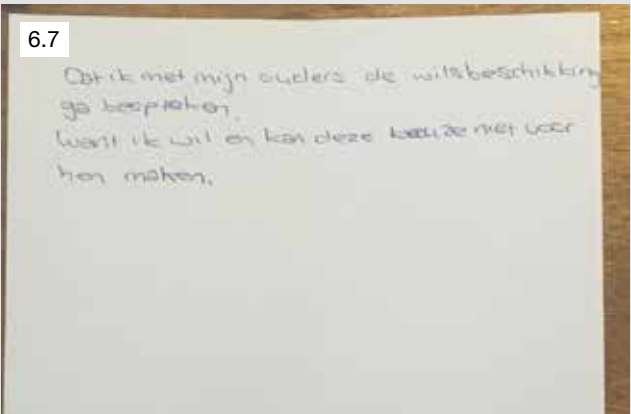 6.7
Dat ik met mijn ouders de wilsbeschikking
ga bespreken.
Want ik wil en kan deze keuze niet voor
hen maken.